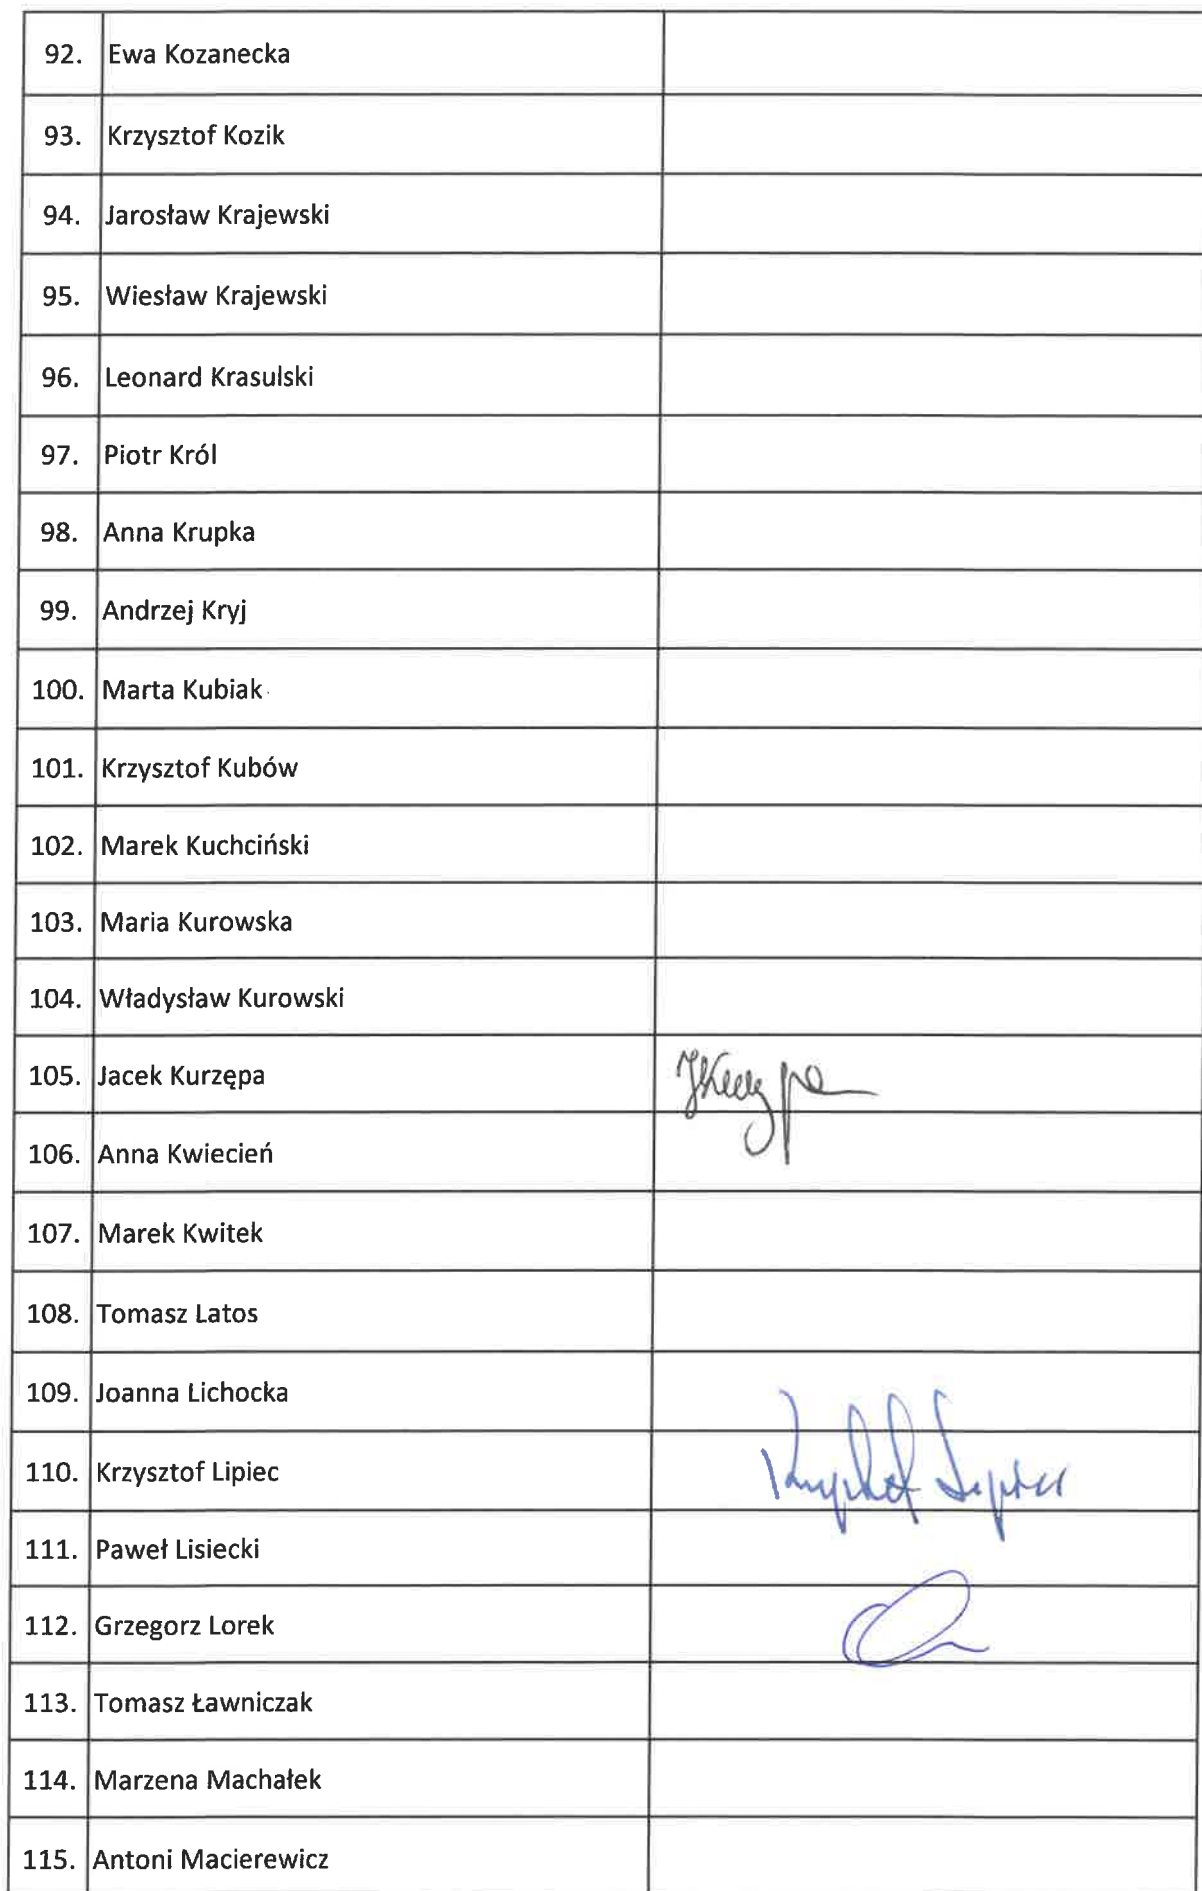 92. Ewa Kozanecka
93. Krzysztof Kozik
94. Jarosław Krajewski
95. Wiesław Krajewski
96. Leonard Krasulski
97. Piotr Król
98. Anna Krupka
99. Andrzej Kryj
100. Marta Kubiak
101. Krzysztof Kubów
102. Marek Kuchciński
103. Maria Kurowska
104. Władysław Kurowski
105. Jacek Kurzępa
106. Anna Kwiecień
107. Marek Kwitek
108. Tomasz Latos
109. Joanna Lichocka
110. Krzysztof Lipiec Krzysztof Lipiec
111. Paweł Lisiecki
112. Grzegorz Lorek
113. Tomasz Ławniczak
114. Marzena Machałek
115. Antoni Macierewicz